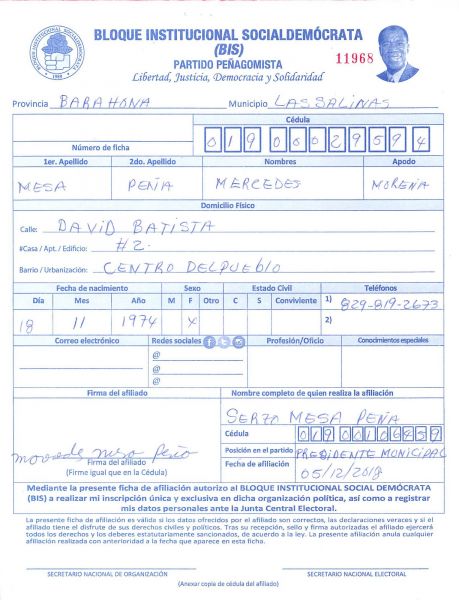 BLOQUE INSTITUCIONAL SOCIALDEMÓCRATA
(BIS)
PARTIDO PEÑAGOMISTA
Libertad, Justicia, Democracia y Solidaridad
11968
BLOQUE INSTITUCIONAL SOCIALDEMÓCRATA
Provincia BARAHONA Municipio LAS SALINAS
Cédula
Número de ficha 019 0002959 4
1er. Apellido 2do. Apellido Nombres Apodo
MESA PEÑA MERCEDES MORENA
Domicilio Físico
Calle: DAVID BATISTA
#Casa / Apt. / Edificio: #2.
Barrio / Urbanización: CENTRO DEL PUEBLO
Fecha de nacimiento Sexo Estado Civil Teléfonos
Día Mes Año M F Otro C S Conviviente 1) 829-819-2673
18 11 1974 X 2)
Correo electrónico Redes sociales Profesión/Oficio Conocimientos especiales
@
@
@
Firma del afiliado Nombre completo de quien realiza la afiliación
SERZO MESA PEÑA
Cédula
Posición en el partido PRESIDENTE MONICIPAL
Fecha de afiliación 05/12/2018
mesa Peña
Firma del afiliado
(Firme igual que en la Cédula)
Mediante la presente ficha de afiliación autorizo al BLOQUE INSTITUCIONAL SOCIAL DEMÓCRATA
(BIS) a realizar mi inscripción única y exclusiva en dicha organización política, así como a registrar
mis datos personales ante la Junta Central Electoral.
La presente ficha de afiliación es válido si los datos ofrecidos por el afiliado son correctos, las declaraciones veraces y si el
afiliado tiene el disfrute de sus derechos civiles y políticos. Tras su recepción, sello y firma autorizadas el afiliado ejercerá
todos los derechos y los deberes estatutariamente sancionados, de acuerdo a la ley. La presente afiliación anula cualquier
afiliación realizada con anterioridad a la fecha que aparece en esta ficha.
SECRETARIO NACIONAL DE ORGANIZACIÓN SECRETARIO NACIONAL ELECTORAL
(Anexar copia de cédula del afiliado)